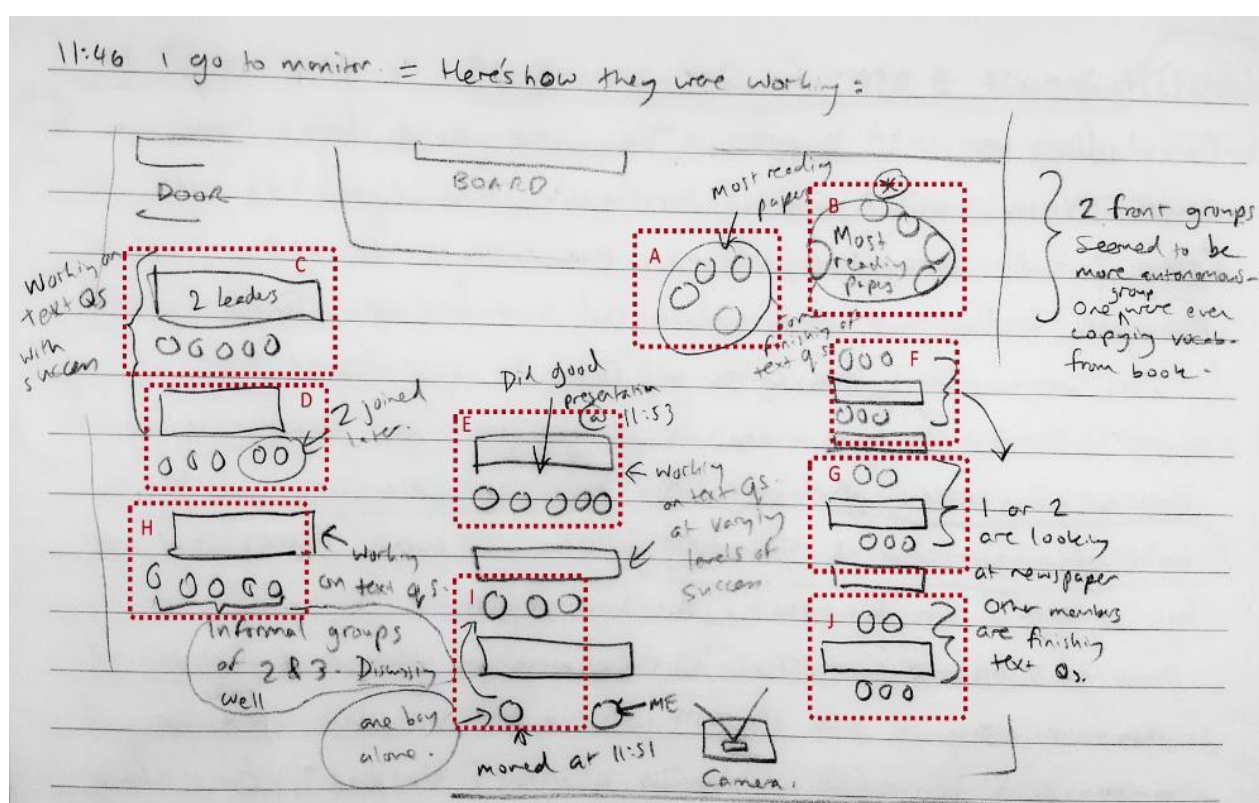 11:46 I go to monitor. = Here's how they were working =
DOOR
BOARD
Most reading
paper
B
Most
reading
paper
2 front groups
seemed to be
more autonomous -
One group were even
copying vocab
from book.
A
C
2 leaders
Working on
text Qs
with
success
Some
finishing of
text qs.
F
D
2 joined
later.
Did good
presentation
@ 11:53
E
working
on text qs.
at varying
levels of
success
G
1 or 2
are looking
at newspaper
Other members
are finishing
text Qs.
H
working
on text qs.
Informal groups
of 2 & 3. Discussing
well
I
J
one boy
alone.
moved at 11:51
ME
Camera.